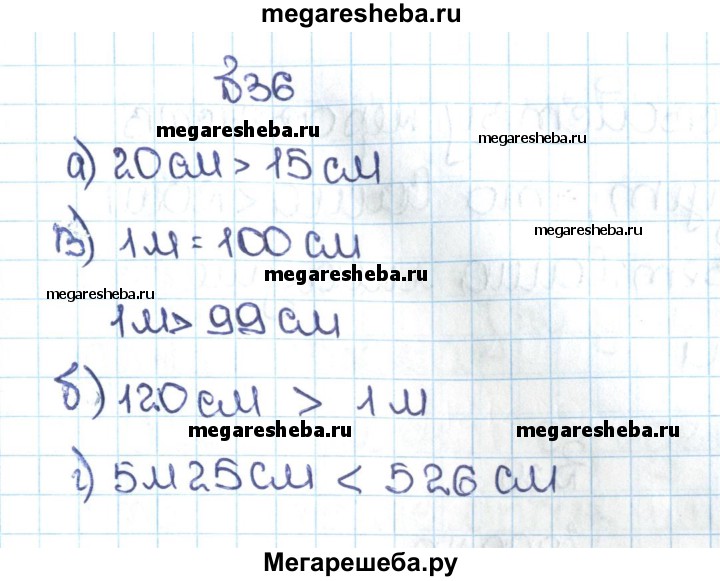 megaresheba.ru
В36
megaresheba.ru
megaresheba.ru
а) 20 см > 15 см
в) 1 м = 100 см
megaresheba.ru
megaresheba.ru
megaresheba.ru
1 м > 99 см
б) 120 см > 1 м
megaresheba.ru
megaresheba.ru
г) 5 м 25 см < 526 см
Мегарешеба.ру